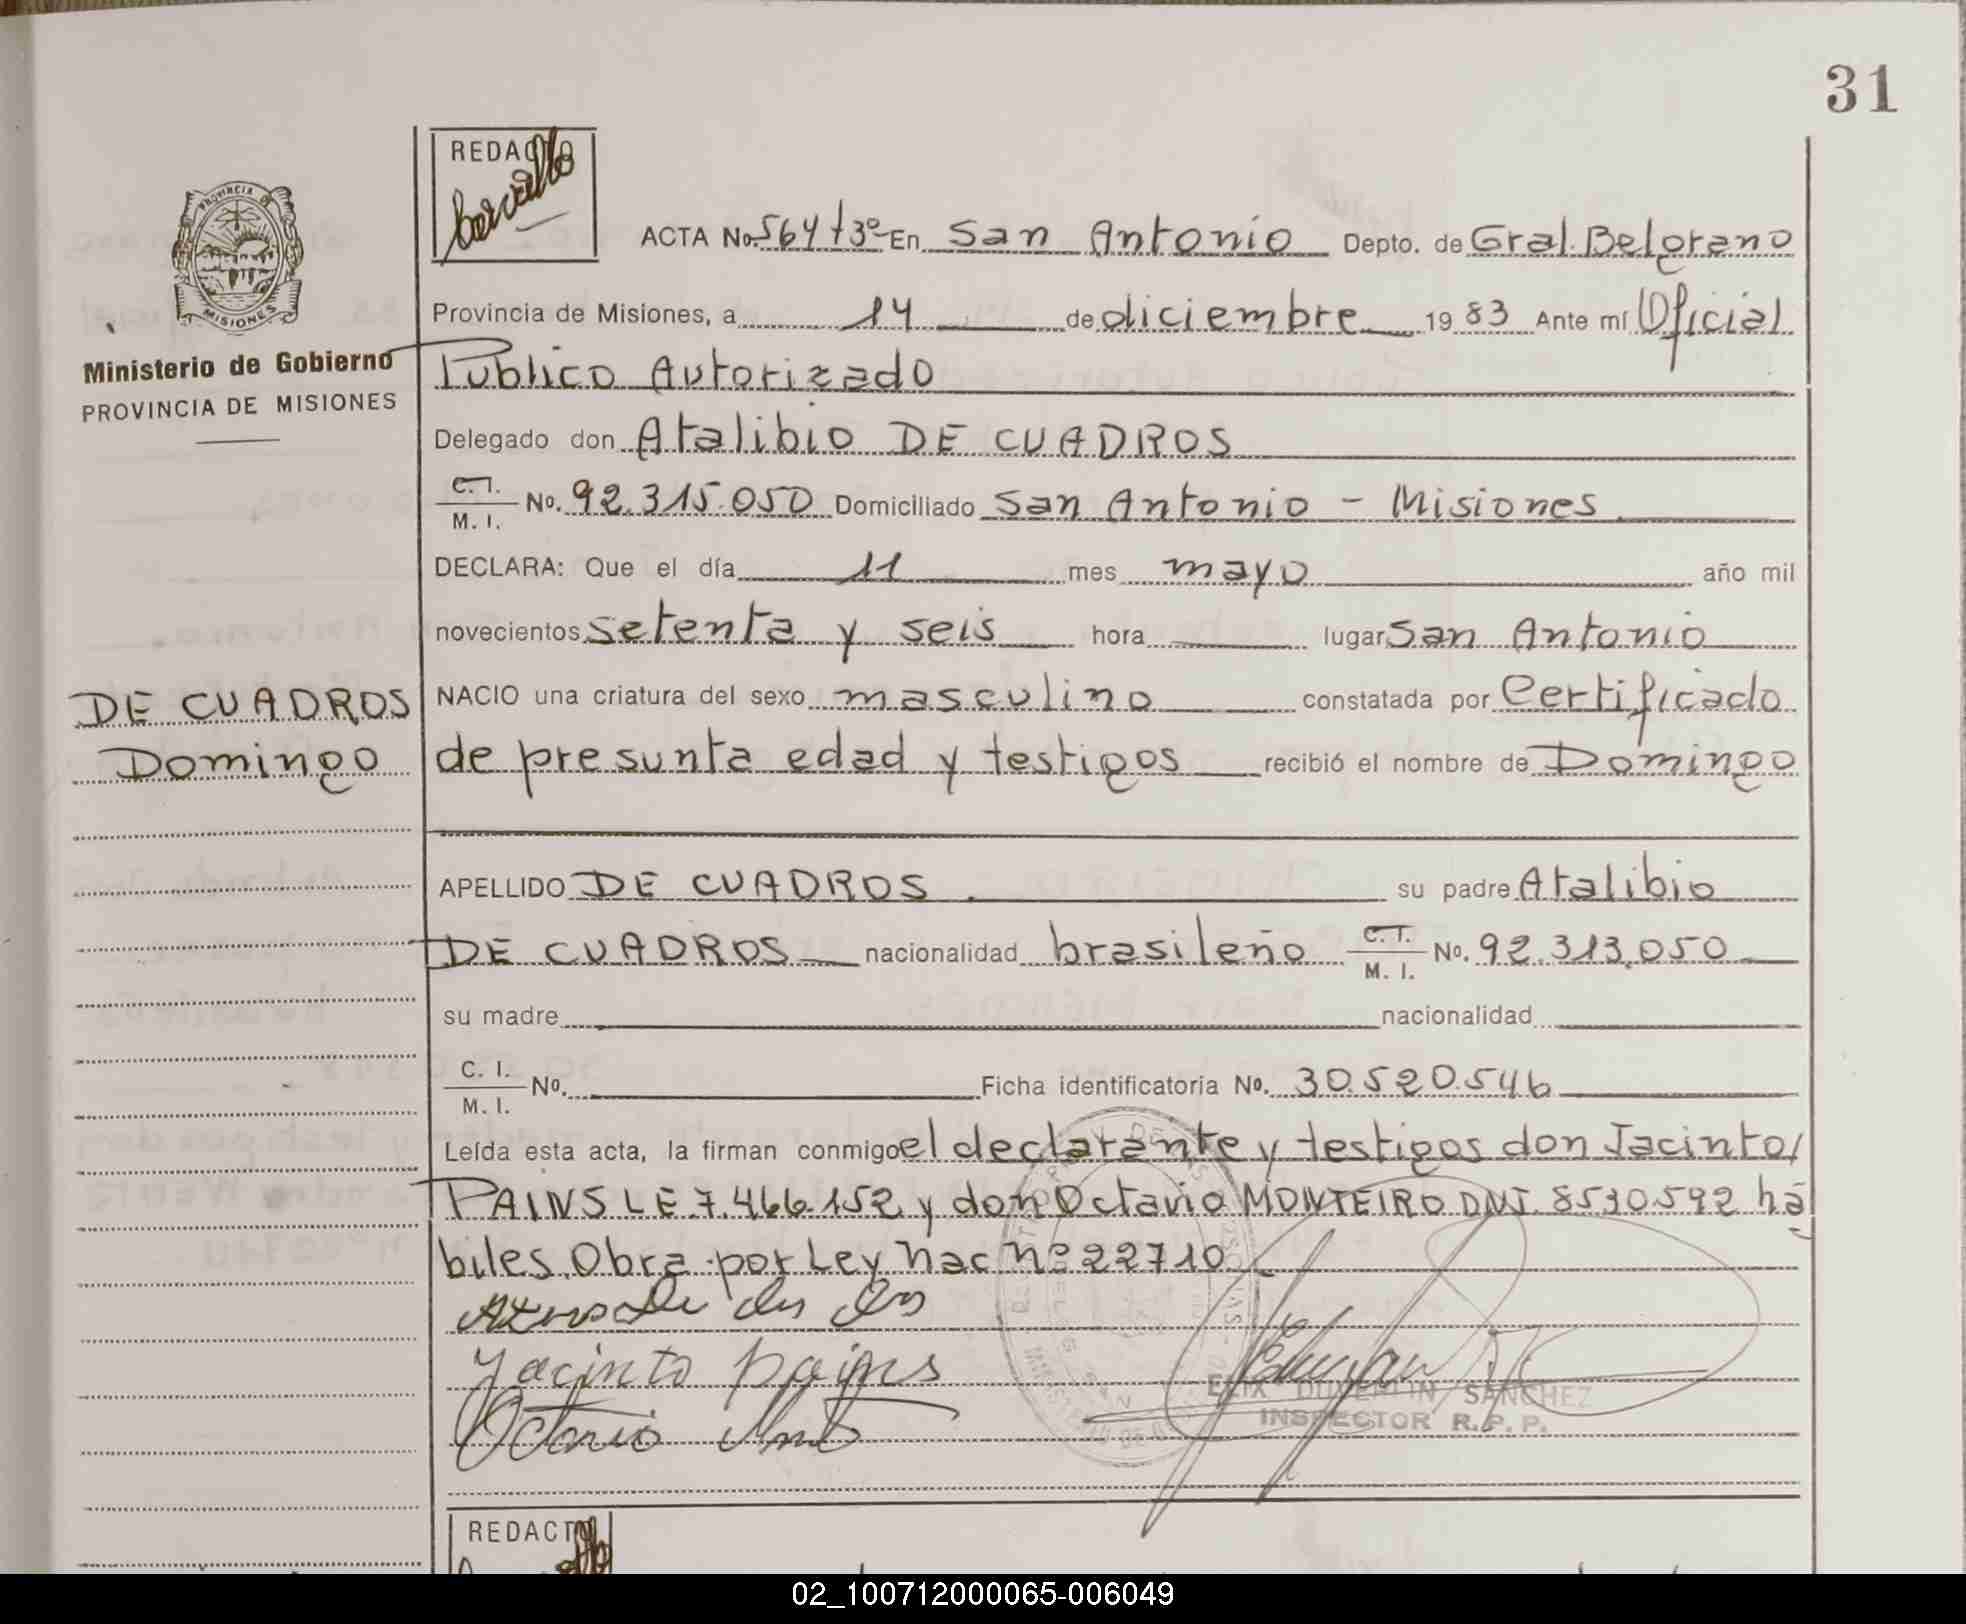 31
REDACTO
ACTA No. 564 t3º En San Antonio Depto. de Gral. Belgrano
PROVINCIA DE
MISIONES
Provincia de Misiones, a 14 de diciembre 1983 Ante mí Oficial
Ministerio de Gobierno
PROVINCIA DE MISIONES
Publico Autorizado
Delegado don Atalibio DE CUADROS
C.I. M. I. No. 92.315.050 Domiciliado San Antonio - Misiones
DECLARA: Que el día 11 mes mayo año mil
novecientos setenta y seis hora lugar San Antonio
DE CUADROS
Domingo
NACIO una criatura del sexo masculino constatada por Certificado
de presunta edad y testigos recibió el nombre de Domingo
APELLIDO DE CUADROS. su padre Atalibio
DE CUADROS nacionalidad brasileño C.I. M. I. No. 92.313.050
su madre nacionalidad
C. I. M. I. No. Ficha identificatoria No. 30.520.546
Leída esta acta, la firman conmigo el declarante y testigos don Jacinto/
PAINS LE 7.466.152 y don Octavio MONTEIRO DNI. 8530592 há
biles. Obra por Ley Nac Nº 22710
Jacinto pains
Octavio
DUVERLIN SANCHEZ
INSPECTOR R.P.P.
REDACTO
02_100712000065-006049